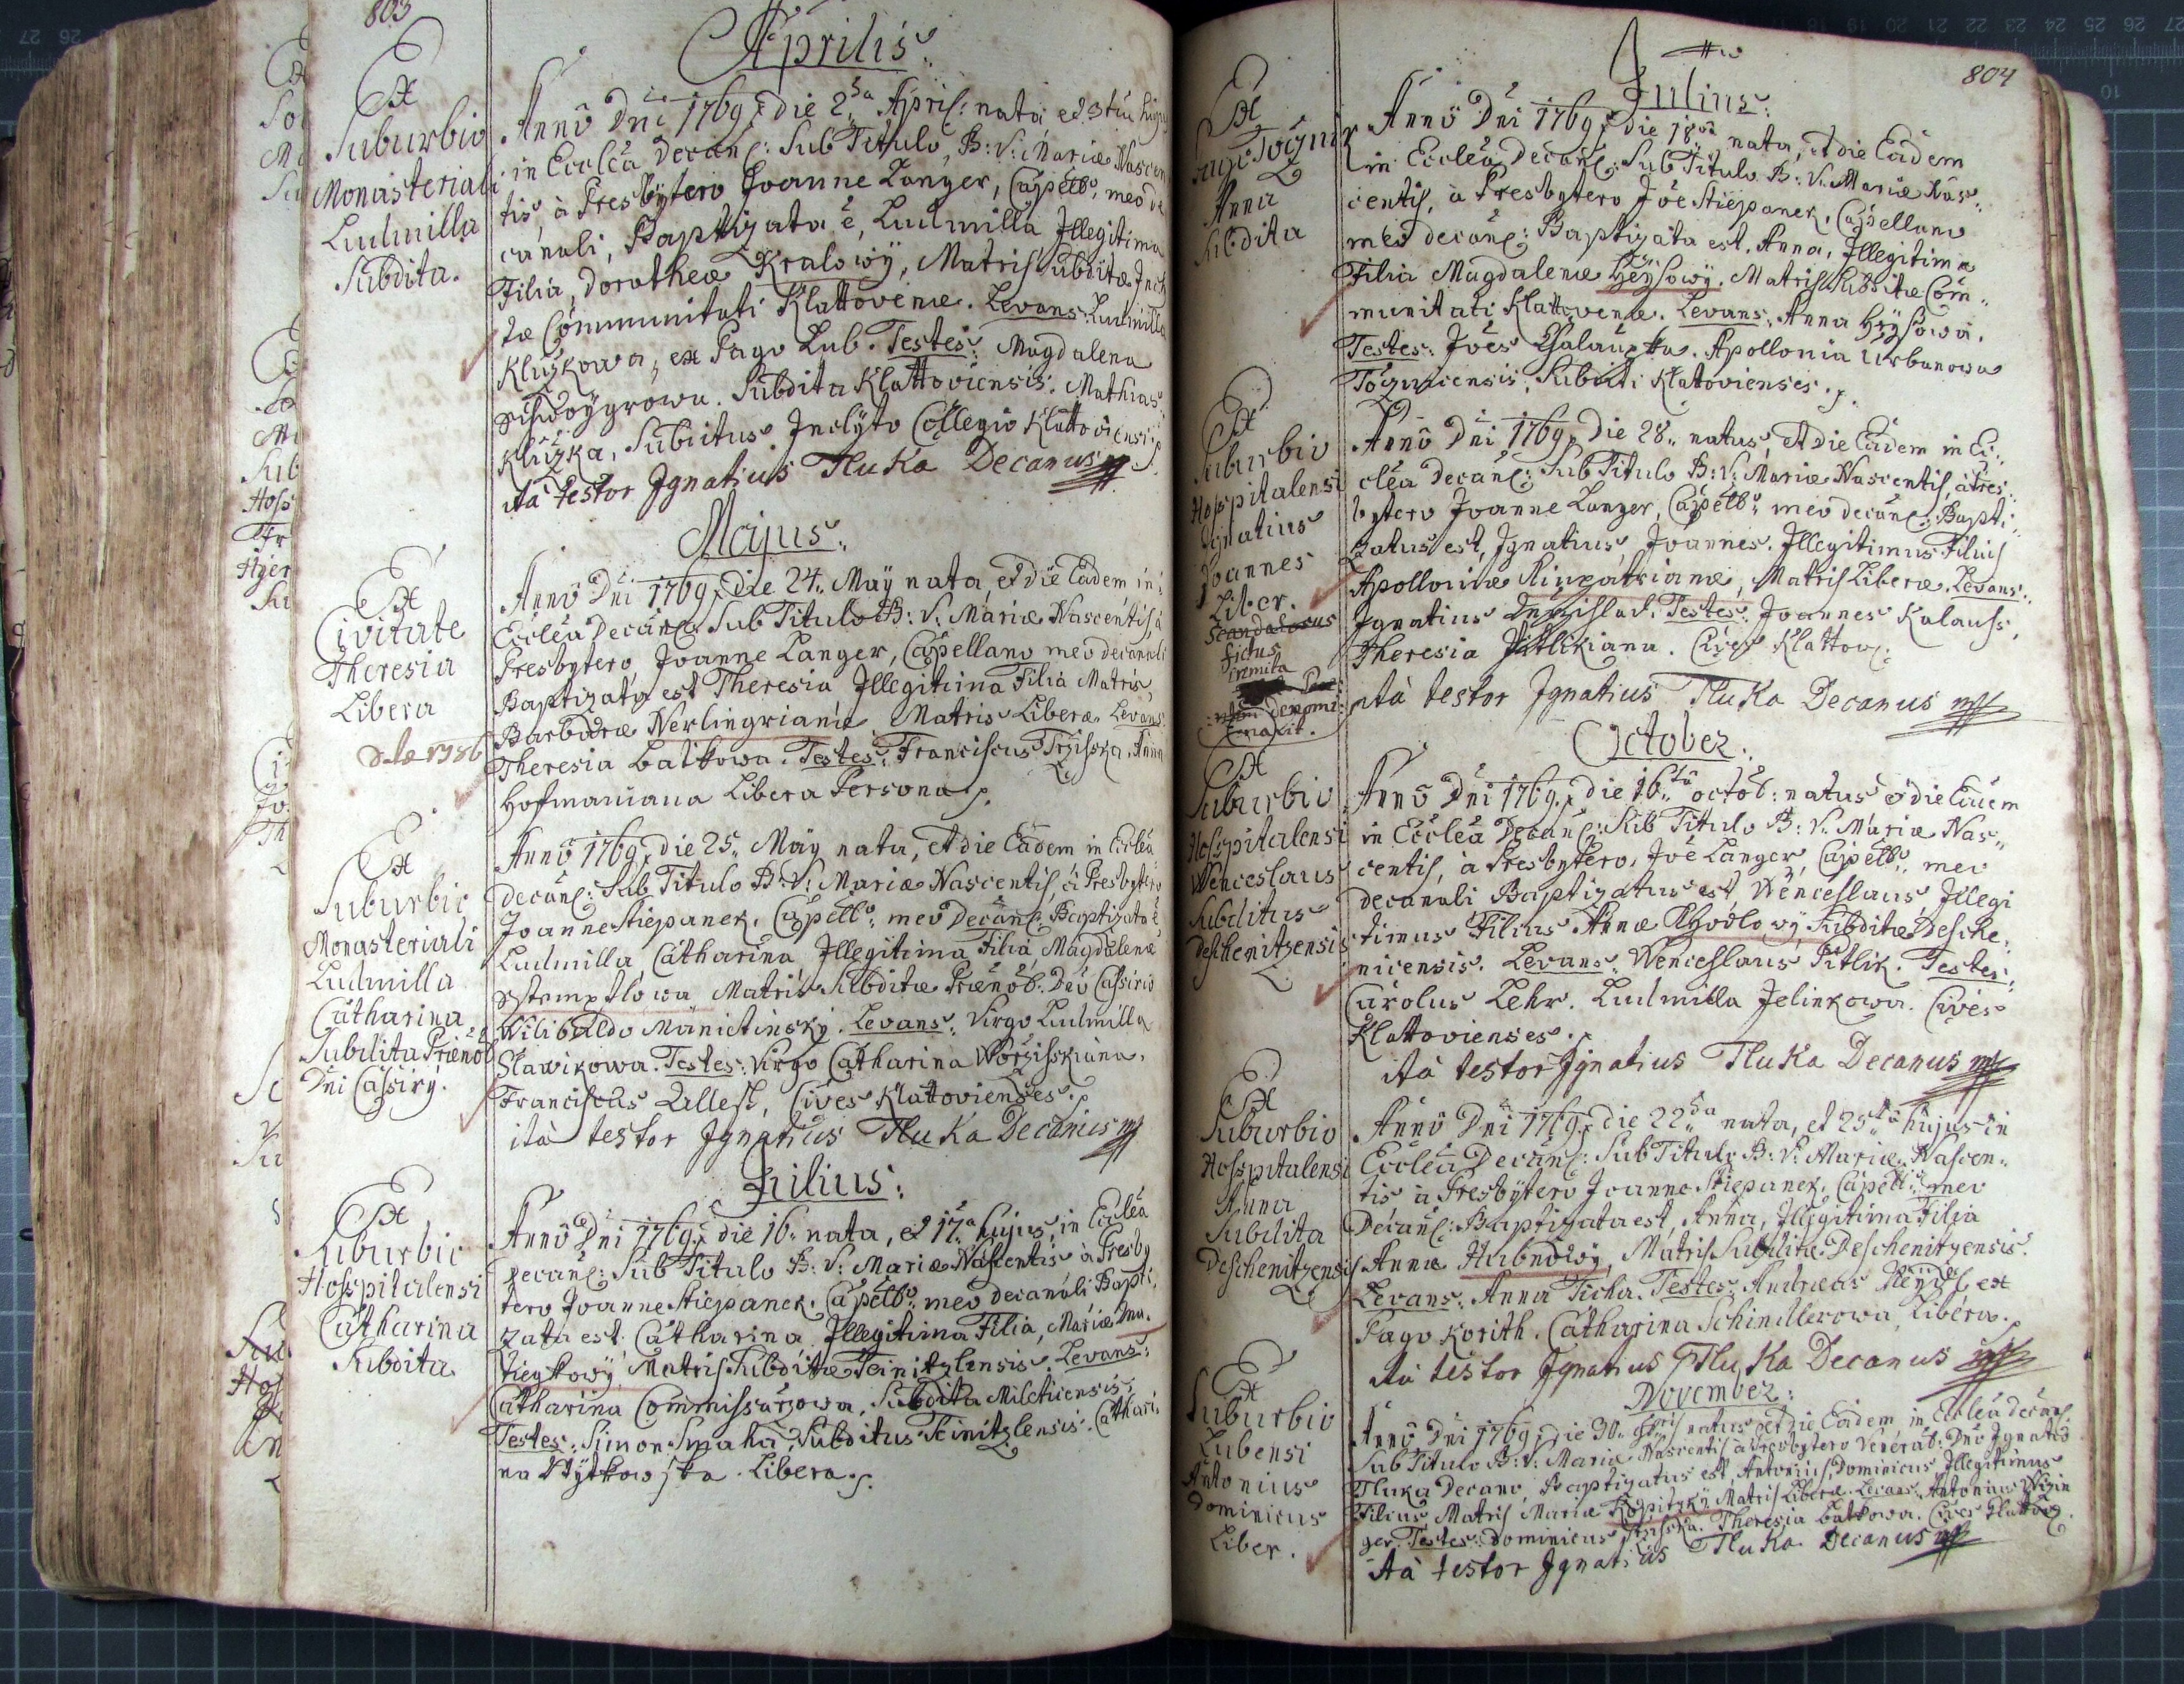 803
Aprilis.
Ex
Suburbio
Monasteriali
Ludmilla
Subdita.
Anno Dni 1769, die 2da April: nata et 3tia hujus
in Ecclea Decanl: Sub Titulo, B: V: Mariæ Nascen
tis, à Presbytero Joanne Langer, Capello, meo de
canali, Baptizata ē, Ludmilla Illegitima
Filia, Dorotheæ Kralowÿ, Matris Subditæ Incly
tæ Communitati Klattovenæ. Levans: Ludmilla
Kluzkowa, ex Pago Lub. Testes: Magdalena
Subdita Klattoviensis. Mathias
Kluzka, Subditus Inclyto Collegio Klattoviensi
ità testor Ignatius Tluka Decanus mp
Majus.
Ex
Civitate
Theresia
Libera
Anno Dni 1769, die 24. Maÿ nata, et die Eadem in
Ecclea Decanl: Sub Titulo B: V: Mariæ Nascentis, à
Presbytero, Joanne Langer, Capellano meo decanali
Baptizata est Theresia Illegitima Filia Matris,
Barbaræ Nerlingrianæ Matris Liberæ. Levans:
Theresia Batkowa. Testes: Franciscus Trzisska. Anna
Hofmaniana Libera Persona.
Ex
Suburbio
Monasteriali
Ludmilla
Catharina
Subdita Prænob
Dni Cassirÿ.
Anno 1769, die 25. Maÿ nata, et die Eadem in Ecclea
Decanl: Sub Titulo B: V: Mariæ Nascentis à Presbytero
Joanne Stiepanek, Capello: meo Decanl: Baptizata ē
Ludmilla Catharina Illegitima Filia Magdalenæ
Matris Subditæ Prænob: Dno Cassirio
Wilibaldo Levans: Virgo Ludmilla
Slawikowa. Testes: Virgo Catharina Worzisskiana,
Franciscus Cives Klattovienses.
ità testor Ignatius Tluka Decanus mp
Julius:
Ex
Suburbio
Hosspitalensi
Catharina
Subdita
Anno Dni 1769, die 16. nata, et 17a hujus, in Ecclea
Decanl: Sub Titulo B: V: Mariæ Nascentis à Presby
tero Joanne Stiepanek, Capello: meo decanali Bapti
zata est Catharina Illegitima Filia, Mariæ
Matris Subditæ Teinitzlensis. Levans:
Catharina Commissarzowa, Subdita Milcticensis.
Testes: Simon Smaha, Subditus Teinitzlensis. Cathari
na Libera.
804
Julius:
Ex
Anna
Subdita
Anno Dni 1769, die 18va nata, et die Eadem
in Ecclea Decanl: Sub Titulo B: V: Mariæ Nas
centis, à Presbytero Joe Stiepanek, Capellano
meo decanl: Baptizata est, Anna, Illegitima
Filia Magdalenæ Heÿsowÿ, Matris Subditæ Com
munitati Klattovenæ. Levans: Anna Heÿsowa.
Testes: Joes Apollonia Urbanowa
Subditi Klatovienses.
Ex
Suburbio
Hosspitalensi
Ignatius
Joannes
Liber.
Scandalosus
fictus
Eremita
Anno Dni 1769, Die 28. natus, et die Eadem in Ec
clea Decanl: Sub Titulo B: V: Mariæ Nascentis, à Pres
bytero Joanne Langer, Capello: meo decanl: Bapti
zatus est, Ignatius, Joannes. Illegitimus Filius
Apolloniæ Matris Liberæ. Levans:
Ignatius Testes: Joannes Kalauss,
Theresia Cives Klattov:
ità testor Ignatius Tluka Decanus mp
October.
Ex
Suburbio
Hosspitalensi
Wenceslaus
Subditus
Deschenitzensis
Anno Dni 1769, die 16ta octob: natus & die Eadem
in Ecclea Decanl: Sub Titulo B: V: Mariæ Nas
centis, à Presbytero, Joe Langer, Capello: meo
decanali Baptizatus est, Wenceslaus, Illegi
timus Filius Annæ Subditæ Desche
nicensis. Levans: Wenceslaus Pitlik. Testes:
Carolus Lehr. Ludmilla Jelinkowa. Cives
Klattovienses.
ità testor Ignatius Tluka Decanus mp
Ex
Suburbio
Hosspitalensi
Anna
Subdita
Deschenitzensis
Anno Dni 1769, die 22da nata, et 25ta hujus in
Ecclea Decanl: Sub Titulo B: V: Mariæ Nascen
tis à Presbytero Joanne Stiepanek, Capello: meo
Decanl: Baptizata est, Anna, Illegitima Filia
Annæ Hubnowÿ, Matris Subditæ Deschenitzensis.
Levans: Anna Ticha. Testes: Andreas ex
Pago Korith. Catharina Schindlerowa, Libera.
ità testor Ignatius Tluka Decanus mp
November:
Ex
Suburbio
Lubensi
Antonius
Dominicus
Liber.
Anno Dni 1769, die 30. 9bris natus et die Eadem in Ecclea decanl
Sub Titulo B: V: Mariæ Nascentis à Presbytero Venerab: Dno Ignatio
Tluka Decano, Baptizatus est, Antonius, Dominicus Illegitimus
Filius, Matris Mariæ Kopitzkÿ Matris Liberæ. Levans: Antonius Wizin
ger. Testes: Dominicus Theresia Batkowa. Cives Klattov:
ità testor Ignatius Tluka Decanus mp